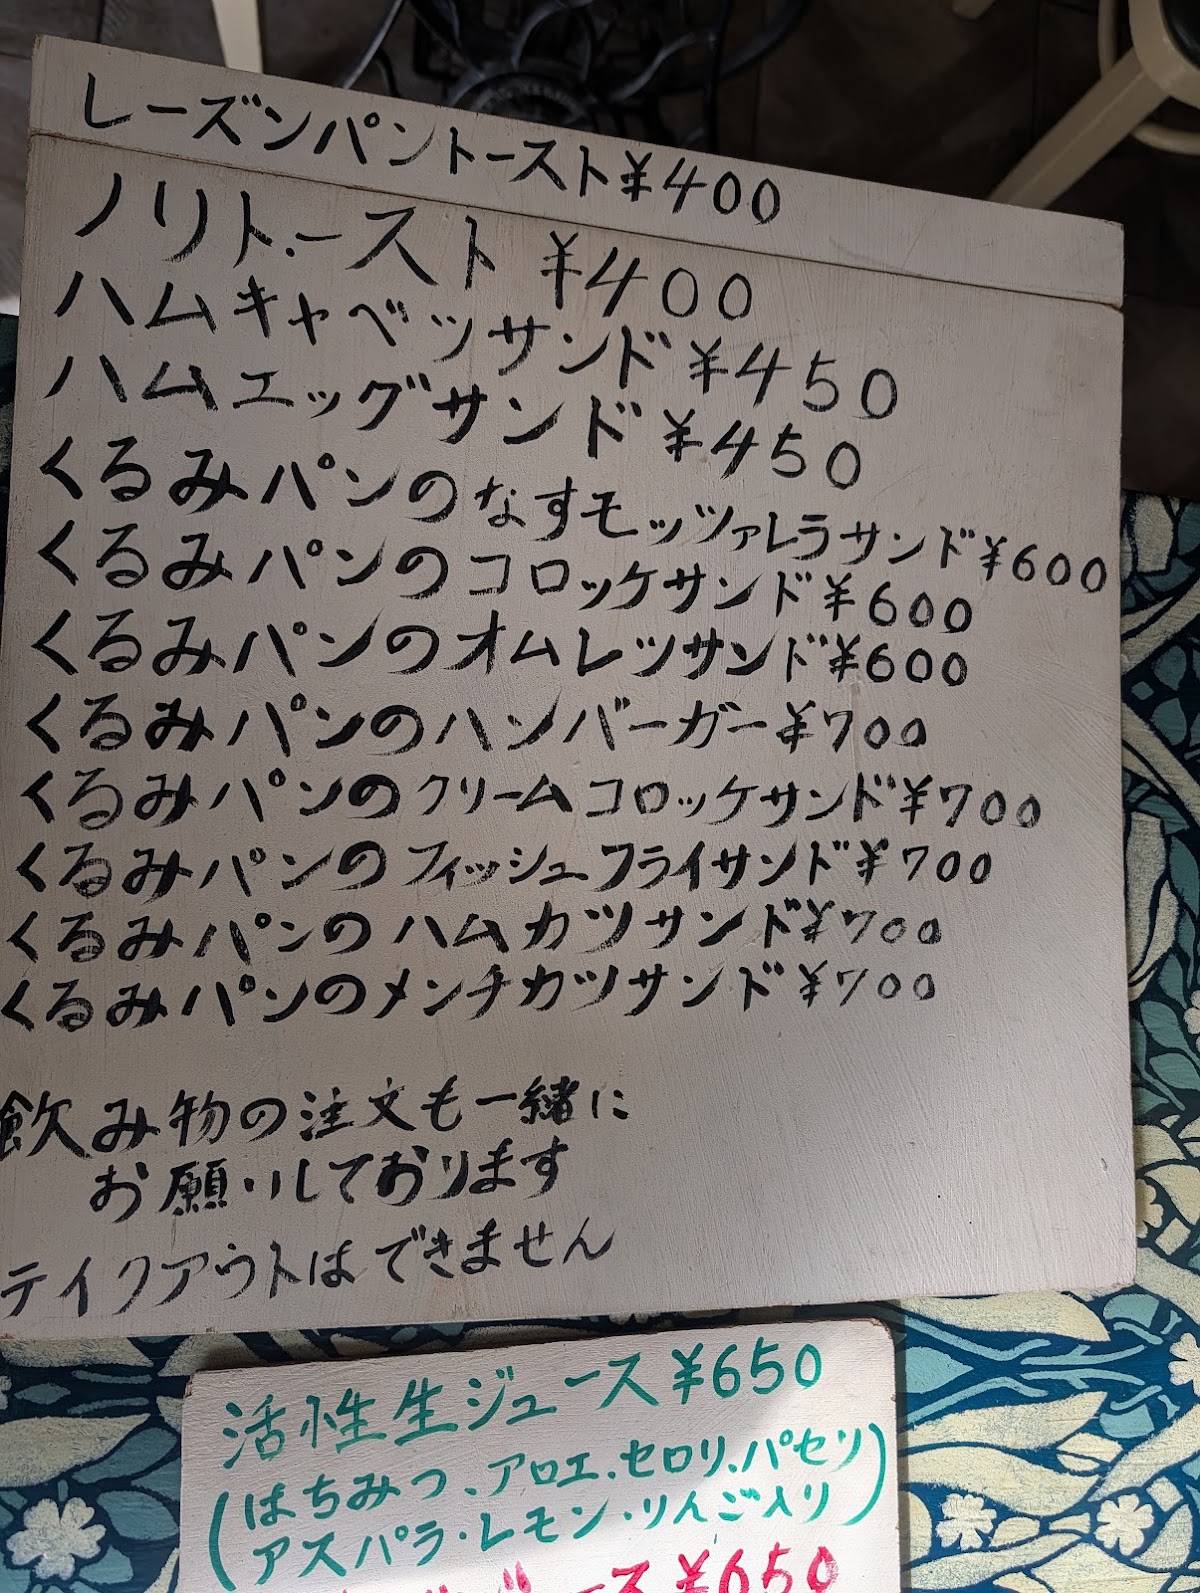 レーズンパントースト¥400
ノリトースト ¥400
ハムキャベツサンド¥450
ハムエッグサンド¥450
くるみパンのなすモッツァレラサンド¥600
くるみパンのコロッケサンド¥600
くるみパンのオムレツサンド¥600
くるみパンのハンバーガー¥700
くるみパンのクリームコロッケサンド¥700
くるみパンのフィッシュフライサンド¥700
くるみパンのハムカツサンド¥700
くるみパンのメンチカツサンド¥700
飲み物の注文も一緒に
お願いしております
テイクアウトはできません
活性生ジュース¥650
(はちみつ、アロエ、セロリ、パセリ
アスパラ・レモン・りんご入り)
ジュース¥650